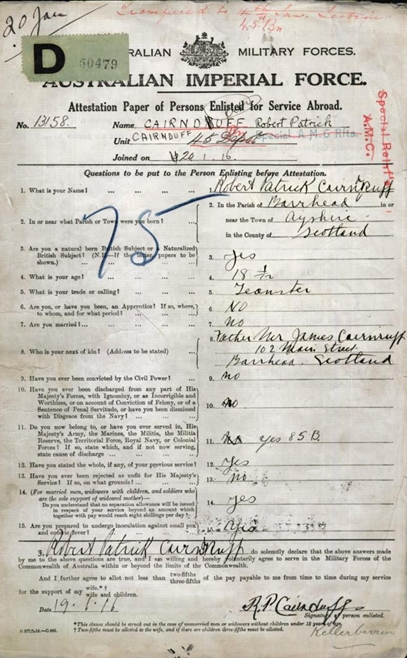 20 Jan
Transferred to
45th Bn
D 50479
AUSTRALIAN MILITARY FORCES.
AUSTRALIAN IMPERIAL FORCE.
Attestation Paper of Persons Enlisted for Service Abroad.
No. 13158. Name CAIRNDUFF Robert Patrick
CAIRNDUFF
Unit 45 Depot
Special A.M.C. Rfts.
Joined on 20.1.16.
Special Reinf
A.M.C.
Questions to be put to the Person Enlisting before Attestation.
1. What is your Name? 1. Robert Patrick Cairnduff
2. In or near what Parish or Town were you born? 2. In the Parish of Barrhead in or
near the Town of Ayshire
in the County of Scotland
75
3. Are you a natural born British Subject or a Naturalized
British Subject? (N.B.—If the latter, papers to be
shown.) 3. Yes
4. What is your age? 4. 18 7/12
5. What is your trade or calling? 5. Teamster
6. Are you, or have you been, an Apprentice? If so, where,
to whom, and for what period? 6. No
7. Are you married? 7. No
8. Who is your next of kin? (Address to be stated) 8. Father Mr James Cairnduff
102 Main Street
Barrhead. Scotland
9. Have you ever been convicted by the Civil Power? 9. no
10. Have you ever been discharged from any part of His
Majesty's Forces, with Ignominy, or as Incorrigible and
Worthless, or on account of Conviction of Felony, or of a
Sentence of Penal Servitude, or have you been dismissed
with Disgrace from the Navy? 10. no
11. Do you now belong to, or have you ever served in, His
Majesty's Army, the Marines, the Militia, the Militia
Reserve, the Territorial Force, Royal Navy, or Colonial
Forces? If so, state which, and if not now serving,
state cause of discharge 11. No yes 85 B.
12. Have you stated the whole, if any, of your previous service? 12. yes
13. Have you ever been rejected as unfit for His Majesty's
Service? If so, on what grounds? 13. no
14. (For married men, widowers with children, and soldiers who
are the sole support of widowed mother)—
Do you understand that no separation allowance will be issued in
respect of your service beyond an amount which
together with pay would reach eight shillings per day? 14. yes
15. Are you prepared to undergo inoculation against small pox
and enteric fever? 15. Yes
I, Robert Patrick Cairnduff do solemnly declare that the above answers made
by me to the above questions are true, and I am willing and hereby voluntarily agree to serve in the Military Forces of the
Commonwealth of Australia within or beyond the limits of the Commonwealth.
And I further agree to allot not less than two-fifths three-fifths of the pay payable to me from time to time during my service
for the support of my wife.* wife and children.
Date 19.1.16 R.P. Cairnduff
Signature of person enlisted.
*This clause should be struck out in the case of unmarried men or widowers without children under 18 years of age.
†Two-fifths must be allotted to the wife, and if there are children three-fifths must be allotted.
Kellerberrin